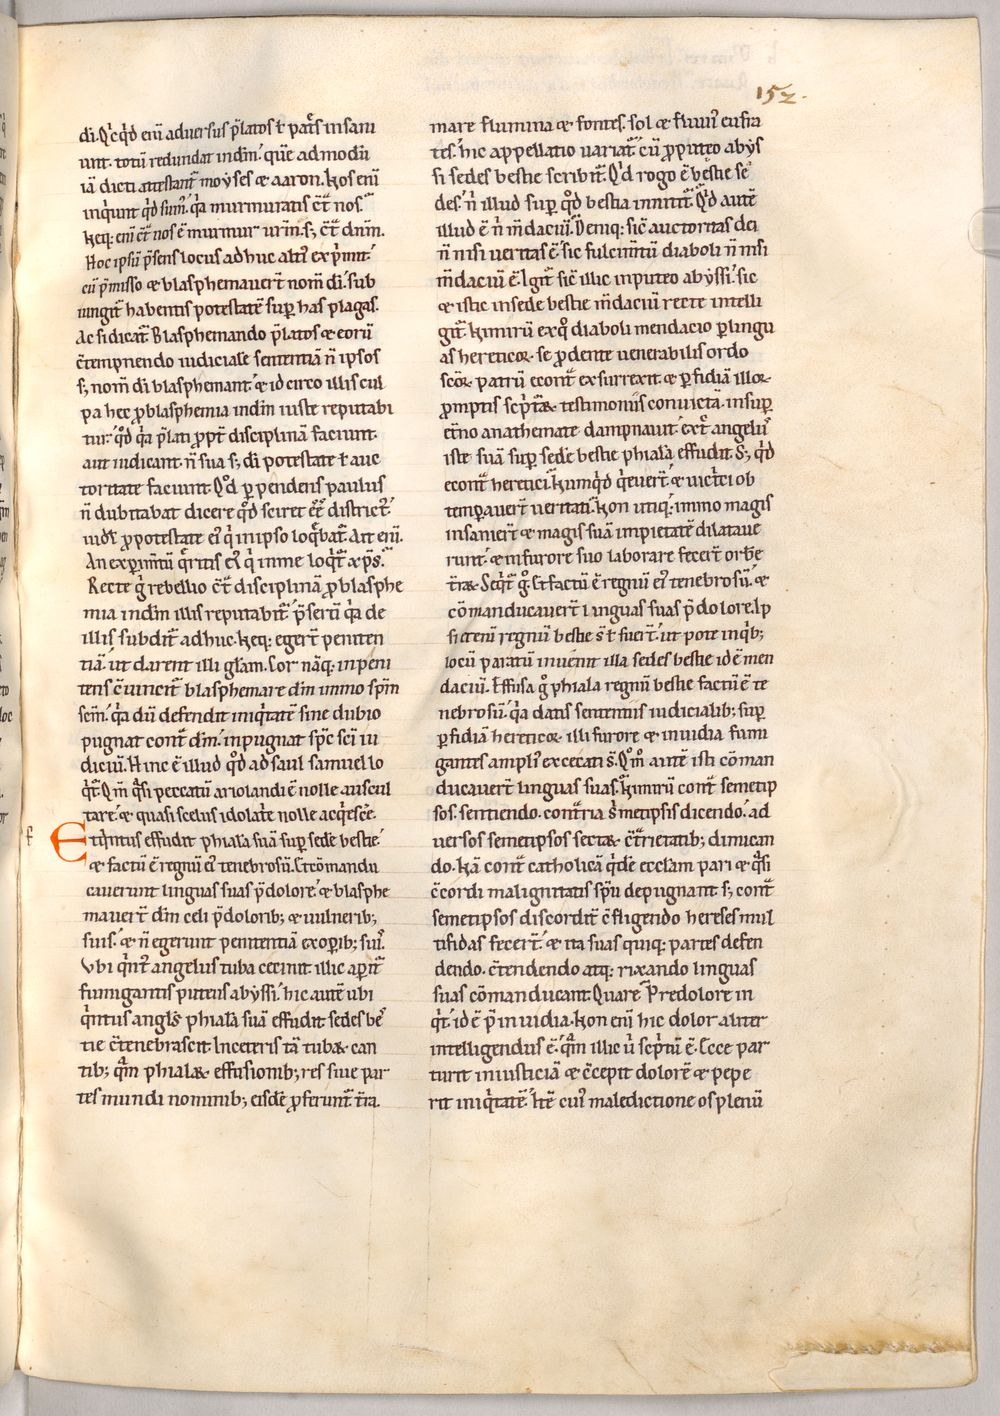 152.
di. Qicqd eni adversus platos ł pats insani
unt. totu redundat in dm. que admodu
ia dicti attestant moyses & aaron. Nos eni
inquunt qd sum. qa murmuratis ct nos.
Neq; eni ct nos e murmur urm. s; ct dnm.
Hoc ipsu psens locus adhuc alti exprimit
cu pmisso & blasphemavert nom di. sub
iungit habentis potestate sup has plagas.
Ac si dicat. Blasphemando platos & eoru
ctempnendo iudiciale sententia n ipsos
s; nom di blasphemant. & id circo illis cul
pa hec p blasphemia in dm iuste reputabi
tur. qd qa plati ppt disciplina faciunt
aut iudicant. n sua s; di potestate ł auc
toritate faciunt. Qd perpendens paulus
n dubitabat dicere qd sciret
p potestate ei q in ipso loqbat. Ait eni.
An experimtu qritis ei q in me loqt xps.
Recte g rebellio ct disciplina p blasphe
mia in dm illis reputabit. pserti qa de
illis subdit adhuc. Neq; egert peniten
tia. ut darent illi glam. Cor naq; inpeni
tens cvincit blasphemare dm immo spm
scm. qa du defendit iniqtate sine dubio
pugnat cont dm. inpugnat spc sci iu
diciu. Hinc e illud qd ad saul samuel lo
qt. Qm qsi peccatu ariolandi e nolle auscul
tare. & quasi scelus idolatre nolle acqescere.
f
Et qintus effudit phiala sua sup sede bestie.
& factu e regnu ei tenebrosu. Et comandu
caverunt linguas suas p dolore. & blasphe
mavert dm celi p dolorib; & vulnerib;
suis. & n egerunt penitentia ex operib; suis.
Ubi qnt angelus tuba cecinit illic aperit
fumigantis puteus abyssi. hic aute ubi
qintus angls phiala sua effudit sedes bes
tie ctenebrascit. In ceteris ta tubaꝝ can
tib; qm phialaꝝ effusionib; res sive par
tes mundi nominib; eisde pferunt. tra.
mare flumina & fontes. sol & fluvi eufra
tes. hic appellatio variat. cu p puteo abys
si sedes bestie scribit. Qd rogo e bestie se
des. n illud sup qd bestia innitit. Qd aute
illud e n mdaciu. Deniq; sic auctoritas dei
n nisi veritas e. sic fulcimtu diaboli n nisi
mdaciu e. Igit sic illic in puteo abyssi. sic
& istic in sede bestie mdaciu recte intelli
git. Nimiru ex q diaboli mendacio p lingu
as hereticoꝝ se pdente venerabilis ordo
scoꝝ patru econt exsurrexit. & pfidia illoꝝ
pmptis scptaꝝ testimoniis convicta. insup
etno anathemate dampnavit. ext angelus
iste sua sup sede bestie phiala effudit. S; qd
econt heretici. Numqd qevert & victi ob
temperavert veritati. Non utiq;. immo magis
insaniert & magis sua impietate dilatave
runt. & in furore suo laborare fecert orbe
traꝝ. Seqt g. Et factu e regnu ei tenebrosu. &
comanducavert linguas suas p dolore. Ip
si eteni regnu bestie st ł fuert. ut pote in qb;
locu paratu invenit illa sedes bestie id e men
daciu. Effusa g phiala regnu bestie factu e te
nebrosu. qa datis sententiis iudicialib; sup
pfidia hereticoꝝ illi furore & invidia fumi
gantes ampli excecati s. Qm aute isti coman
ducavert linguas suas. Nimiru cont semetip
sos. sentiendo. contria s metipsis dicendo. ad
versos semetipsos sectaꝝ ctrietatib; dimican
do. Na cont catholica qde ecclam pari & qsi
ccordi malignitatis spu depugnant s; cont
semetipsos discordit cfligendo hereses mul
tifidas fecert. & ita suas quiq; partes defen
dendo. ctendendo atq; rixando linguas
suas comanducant. Quare. Pre dolore in
qt. id e p invidia. Non eni hic dolor aliter
intelligendus e. qm illic u scptu e. Ecce par
turit iniusticia & ccepit dolore & pepe
rit iniqtate. Ite cui maledictione os plenu